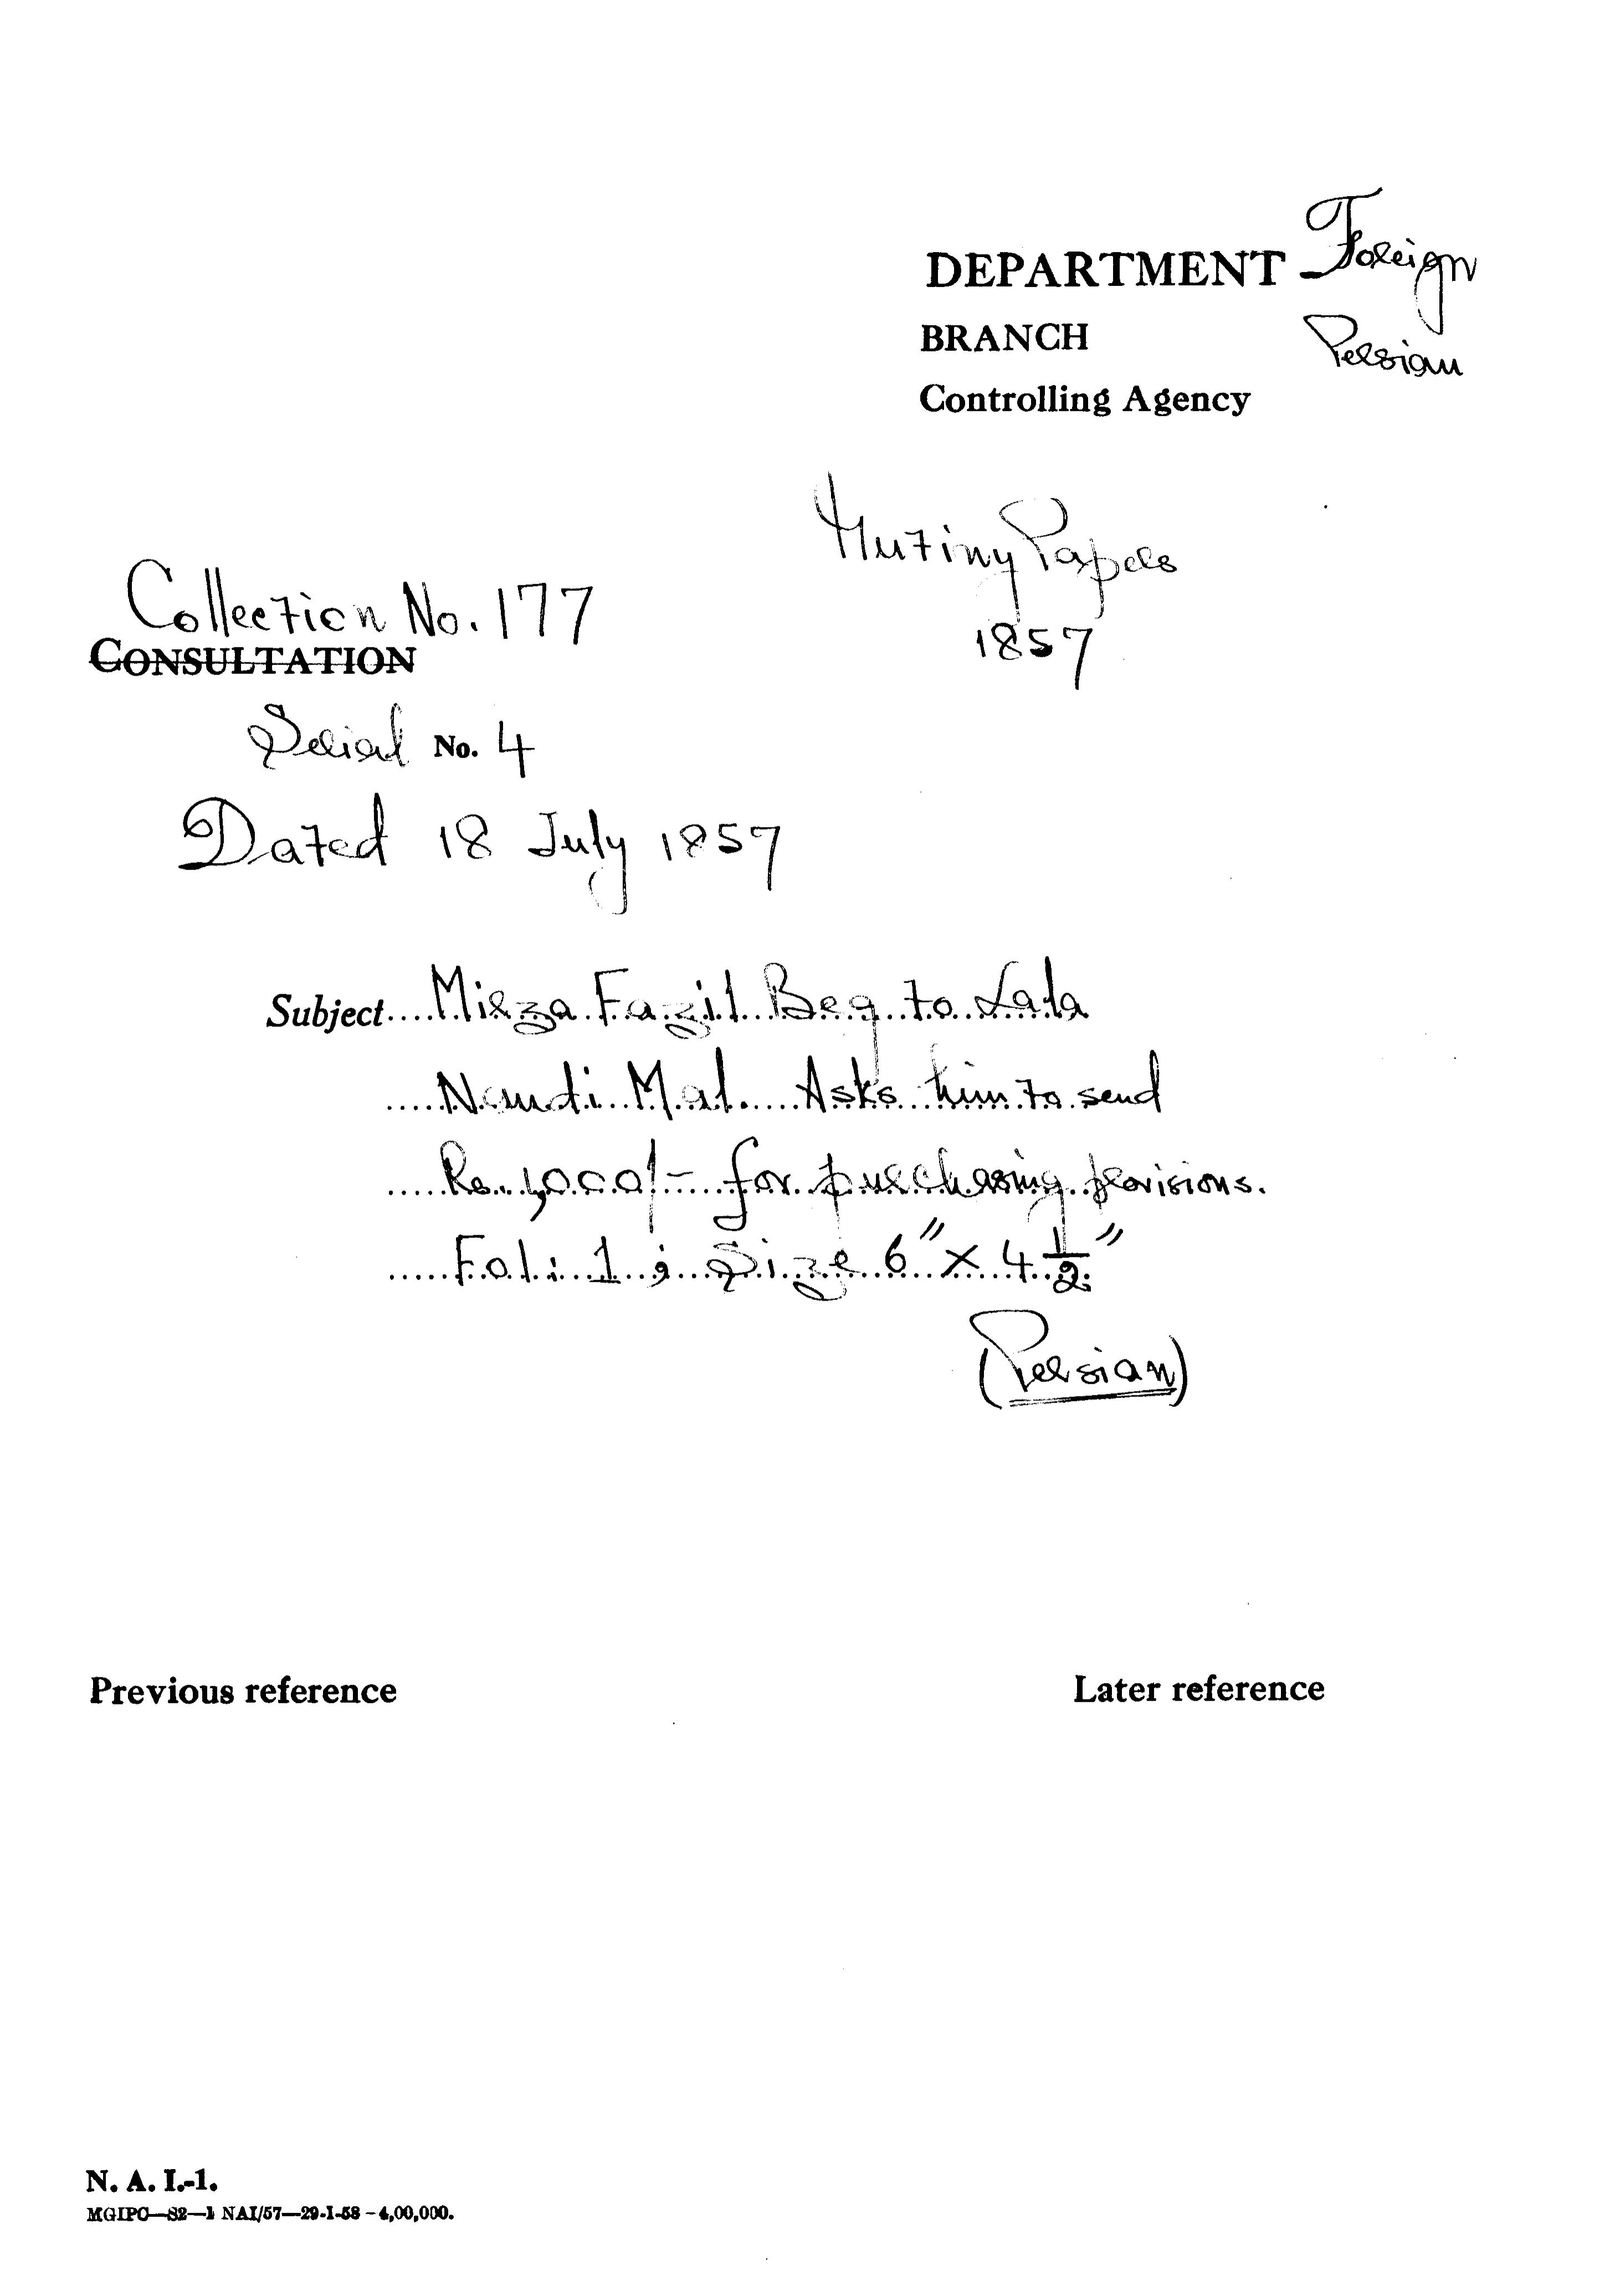 DEPARTMENT Foreign
BRANCH Persian
Controlling Agency
Mutiny Papers
1857
Collection No. 177
CONSULTATION
Serial No. 4
Dated 18 July 1857
Subject....Mirza Fazil Beg to Lala
Nandi Mal. Asks him to send
Rs. 1,000/- for purchasing provisions.
Fol: 1 ; Size 6" x 4 1/2"
(Persian)
Previous reference
Later reference
N. A. I.-1.
MGIPC—S2—1 NAI/57—29-1-58—4,00,000.